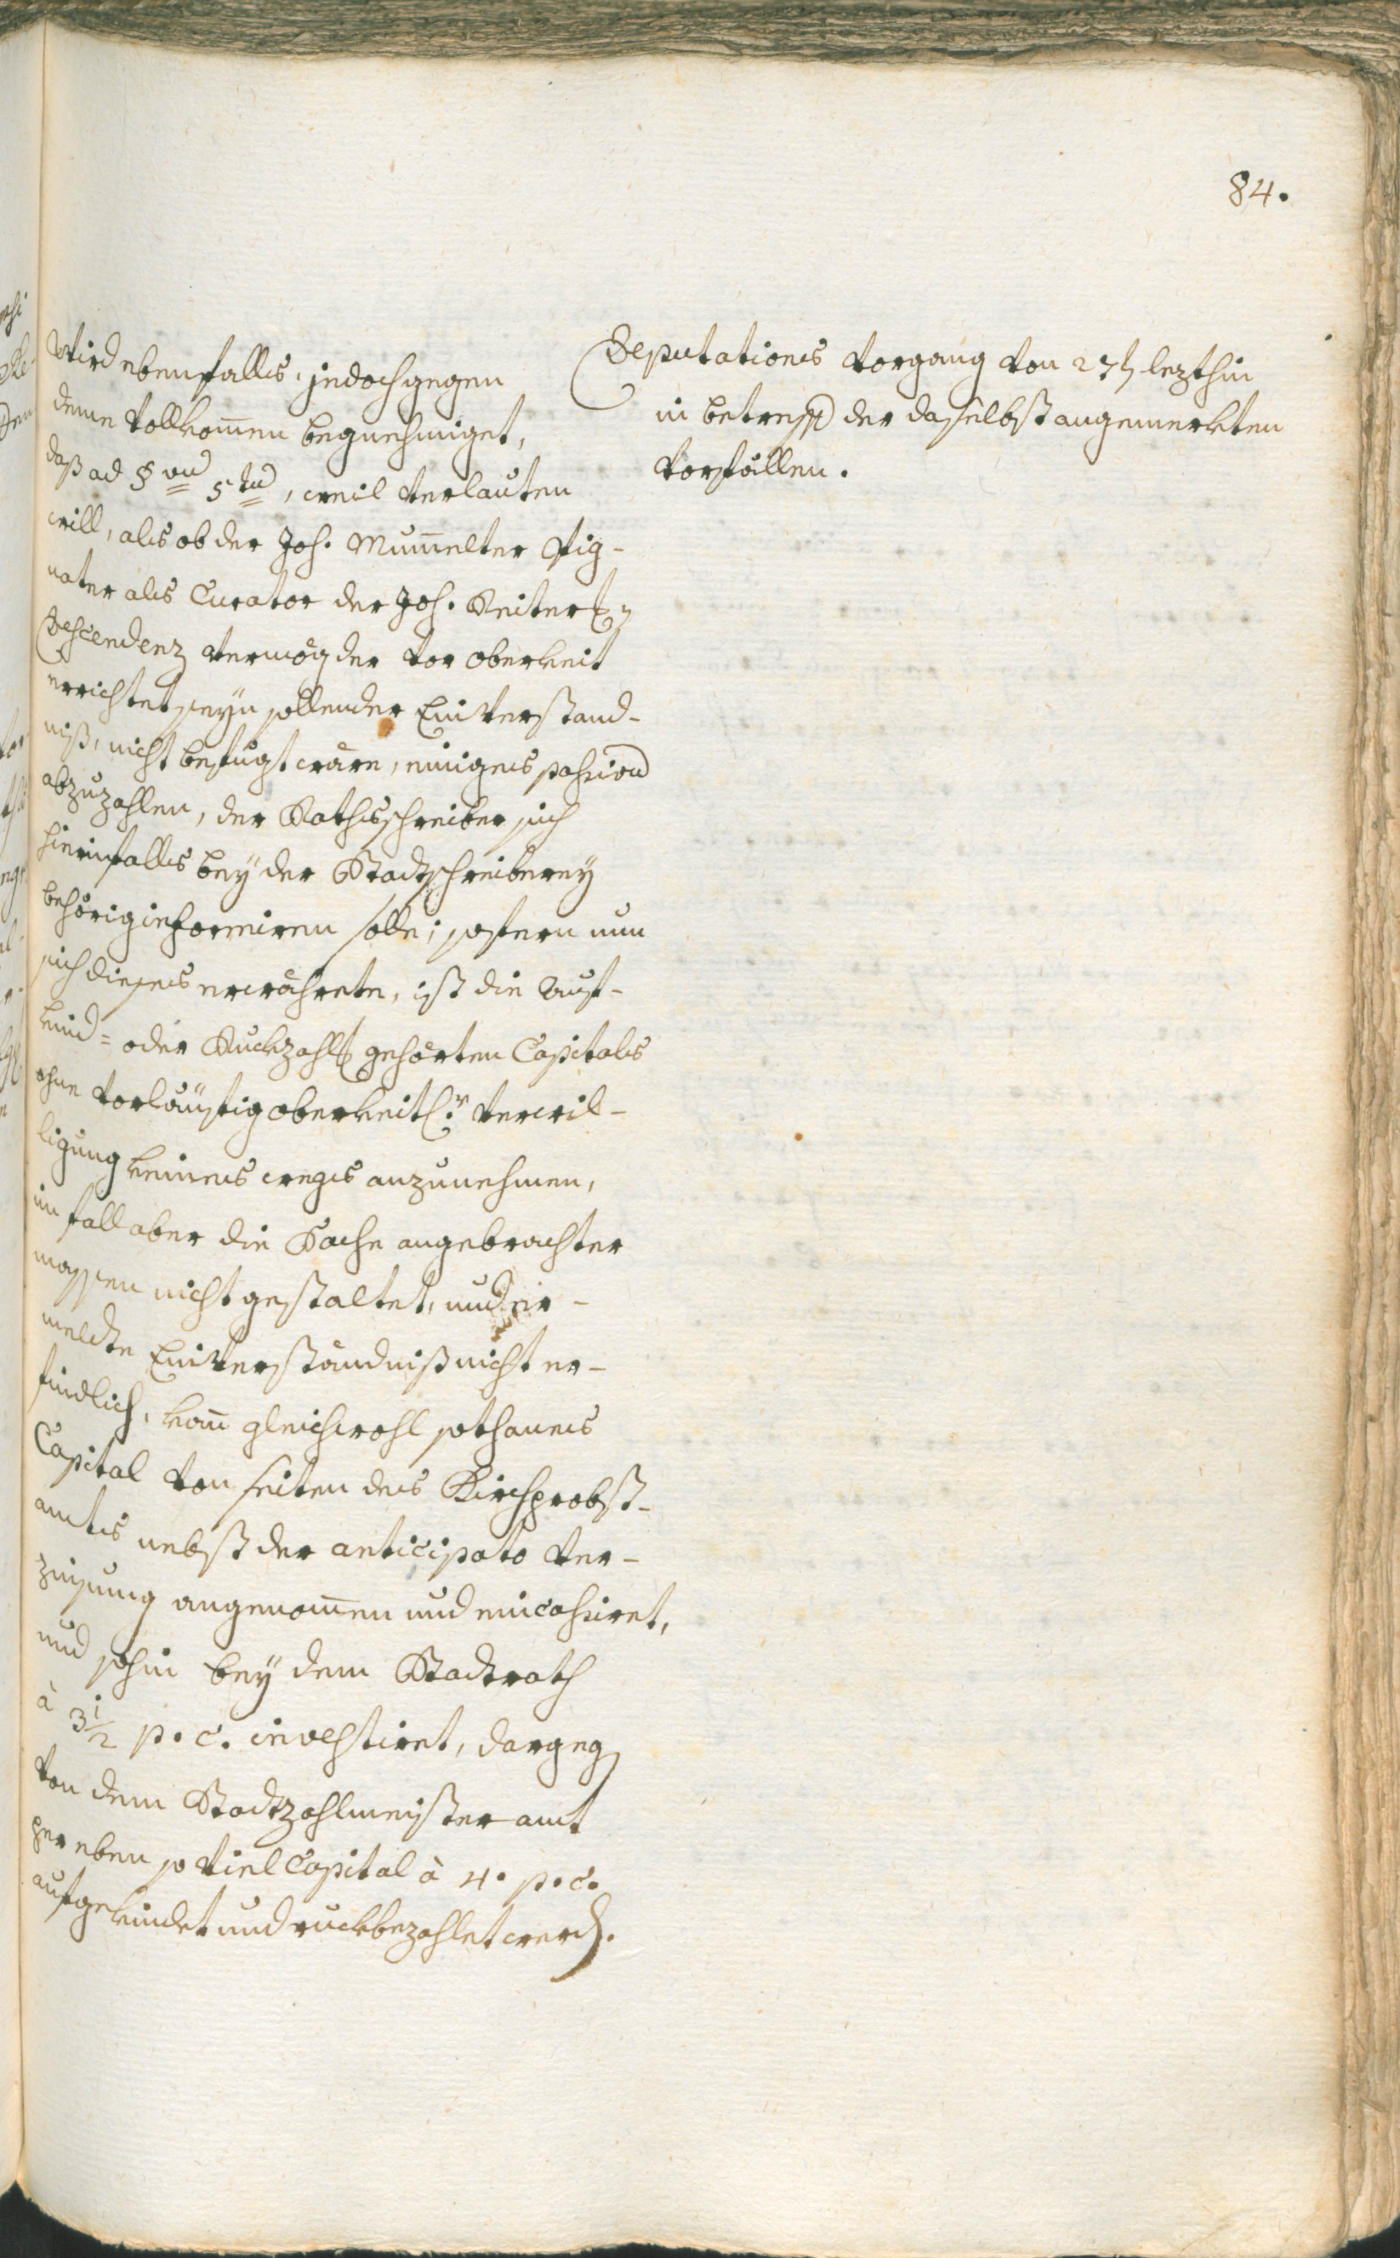 84.
Wird ebenfalls, jedoch gegen
deme vollkom̅en begnehmiget,
daß ad §vu 5tu, weil verlauten
will, als ob der Joh. Mum̅elter Vig-
nater als Curator der Joh. Reiter
Descendenz vermög der vor oberkeit
errichtet seyn sollender Einverständ-
niß, nicht befugt wäre, einiges passivu
abzuzahlen, der Rathsschreiber sich
hierinfalls bey der Stadtschreiberey
behörig informiren solle; sofern nun
sich dieses erwahrete, ist die Auf-
kind- oder Ruckzahlg gehörten Capitals
ohne vorläuftig oberkeitl.r verwil-
ligung keines wegs anzunehmen,
im fall aber die Sache angebrachter
massen nicht gestaltet, und er-
meldte Einverständniß nicht er-
findlich, kan̅ gleichwohl sothanes
Capital von seiten des Kirchprobst-
amts nebst der anticipato ver-
zinsung angenom̅en und eincassiret,
und sohin bey dem Stadtrath
à 3 1/2 p. c. investiret, dargeg
von dem Stadtzahlmeister amt
per eben so viel Capital à 4. p. c.
aufgekindet und ruckbezahlet werd.
Deputations vorgang von 27t lezthin
in betreff der daselbst angemerkten
vorfällen.